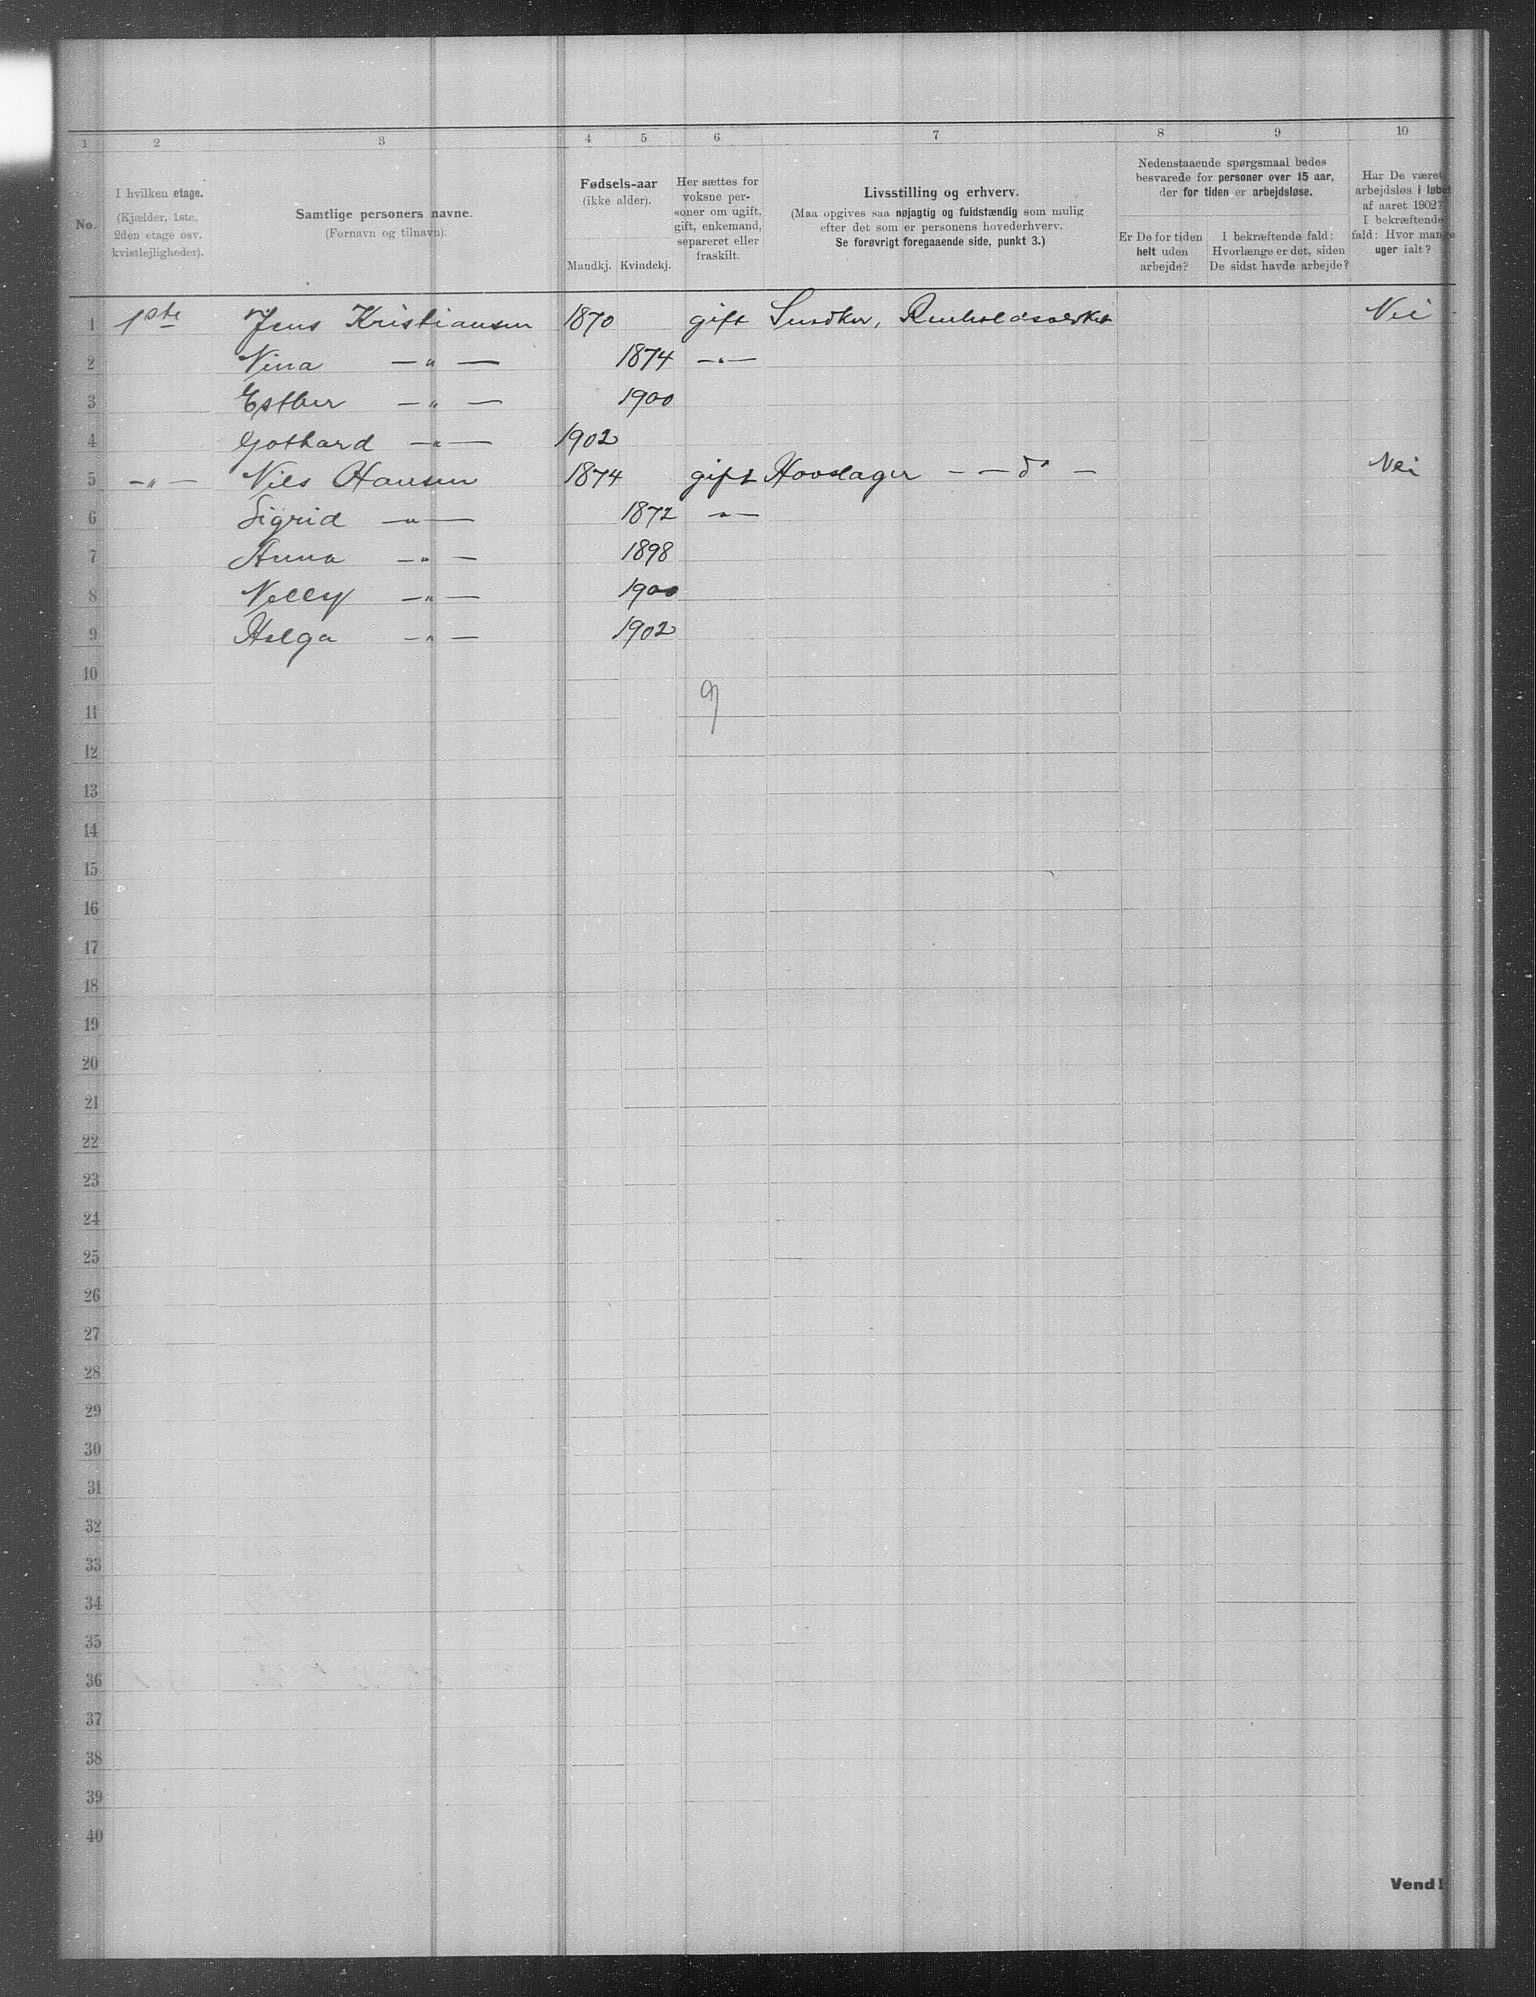 1 2 3 4 5 6 7 8 9 10
No.
I hvilken etage.
(Kjælder, 1ste,
2den etage osv.
kvistlejligheder).
Samtlige personers navne.
(Fornavn og tilnavn).
Fødsels-aar
(ikke alder).
Mandkj. Kvindekj.
Her sættes for
voksne per-
soner om ugift,
gift, enkemand,
separeret eller
fraskilt.
Livsstilling og erhverv.
(Maa opgives saa nøjagtig og fuldstændig som mulig
efter det som er personens hovederhverv.
Se forøvrigt foregaaende side, punkt 3.)
Nedenstaaende spørgsmaal bedes
besvarede for personer over 15 aar,
der for tiden er arbejdsløse.
Er De for tiden
helt uden
arbejde?
I bekræftende fald:
Hvorlænge er det, siden
De sidst havde arbejde?
Har De været
arbejdsløs i løbet
af aaret 1902?
I bekræftende
fald: Hvor mange
uger ialt?
1 1ste Jens Kristiansen 1870 gift Snedker, Nei
2 Nina —"— 1874 —"—
3 Esther —"— 1900
4 Gothard —"— 1902
5 —"— Nils Hansen 1874 gift Hovslager — — do — Nei
6 Sigrid —"— 1872 —"—
7 Anna —"— 1898
8 Nelly —"— 1900
9 Helga —"— 1902
10
9
11
12
13
14
15
16
17
18
19
20
21
22
23
24
25
26
27
28
29
30
31
32
33
34
35
36
37
38
39
40
Vend!